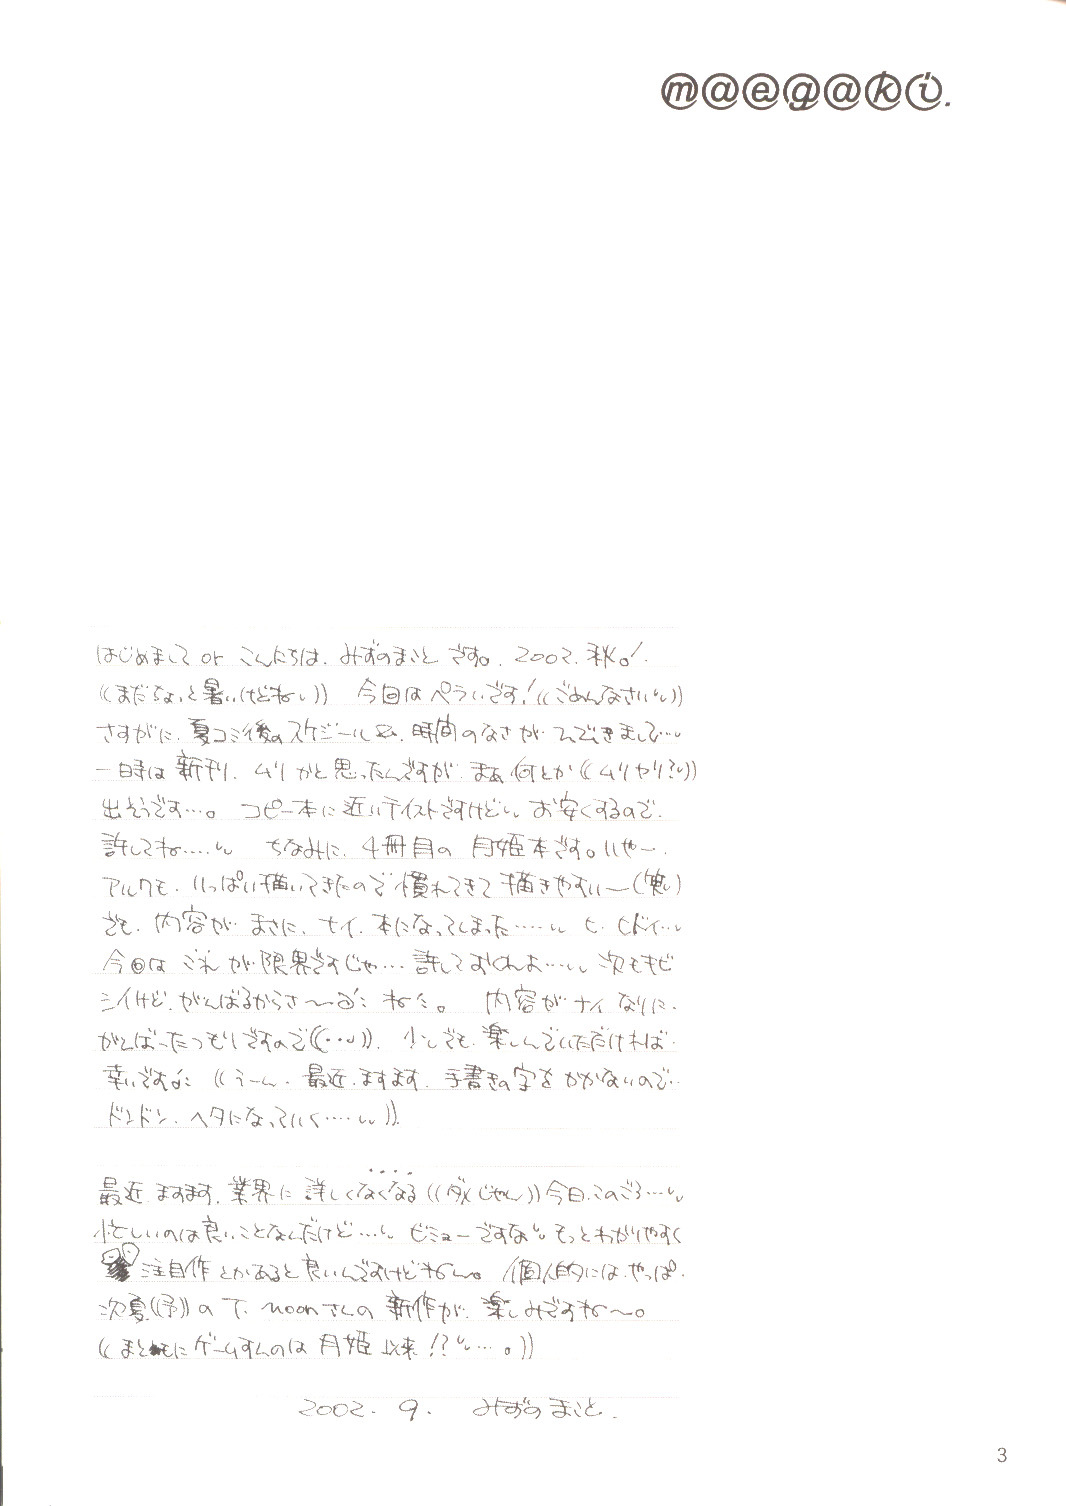 m@eg@ki.
はじめまして or こんにちは. みずのまこと です。 2002. 秋。!
((まだちょっと暑いけどねい)) 今回はぺらいです!((ごめんなさいいい))
さすがに. 夏コミ後のスケジールは. 時間のなさが. でてきまして…い
一時は 新刊. ムリ かと思ったんですが. まぁ 何とか ((ムリヤリ?い))
出そうです…。 コピー本に近いテイストですけどいい お安くするので.
許してね……いい ちなみに. 4冊目の 月姫本です。いやー.
アルクも. いっぱい描いてきたので 慣れてきて 描きやすいー(笑い)
でも. 内容が まさに. ナイ. 本になってしまった……いい ヒ. ヒドイ…い
今回は これ が 限界ですじゃ… 許しておくれよ…いい 次もキビ
シイけど. がんばるからさ〜 ね。 内容が ナイ なりに.
がんばったつもりですので((…い)). 少しでも 楽しんでいただければ.
幸いです ((うーん. 最近. ますます. 手書きの字を かかないので…
ドンドン. ヘタになっていく……いい)).
最近 ますます. 業界に 詳しくなくなる ((ダメじゃん)) 今日このごろ…いい
忙しいのは良いことなんだけど…いい ビミョーですないい もっとわかりやすく
注目作 とかあると 良いんですけどねー。 個人的には. やっぱ.
次夏((予)) の T. moonさんの 新作が. 楽しみですね〜。
((まともに ゲームすんのは 月姫 以来!?い…。))
2002. 9. みずの まこと.
3